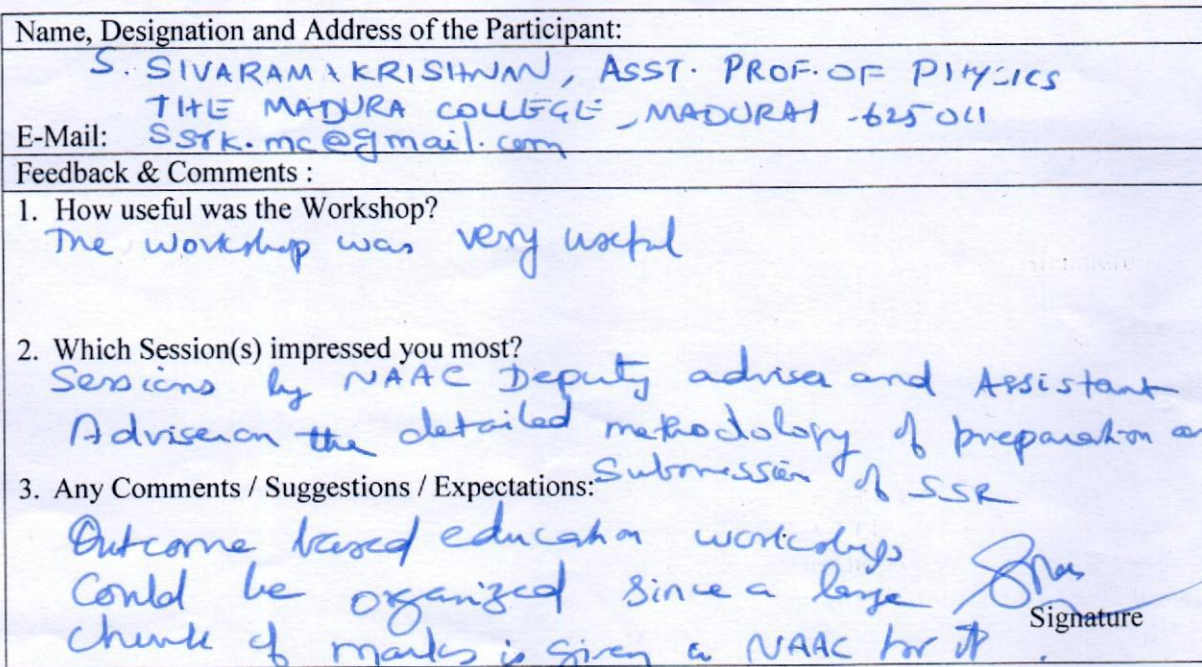 Name, Designation and Address of the Participant:
S. SIVARAMAKRISHNAN, ASST. PROF. OF PHYSICS
THE MADURA COLLEGE, MADURAI -625 011
E-Mail: ssrk.mc@gmail.com
Feedback & Comments :
1. How useful was the Workshop?
The workshop was very useful
2. Which Session(s) impressed you most?
Sessions by NAAC Deputy adviser and Assistant
Adviser on the detailed methodology of preparation an
Submission of SSR
3. Any Comments / Suggestions / Expectations:
Outcome based education workshops
Could be organized since a large
Signature
chunk of marks is given in NAAC for it.